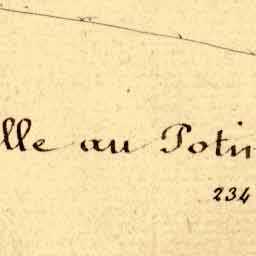 lle au Potin
234